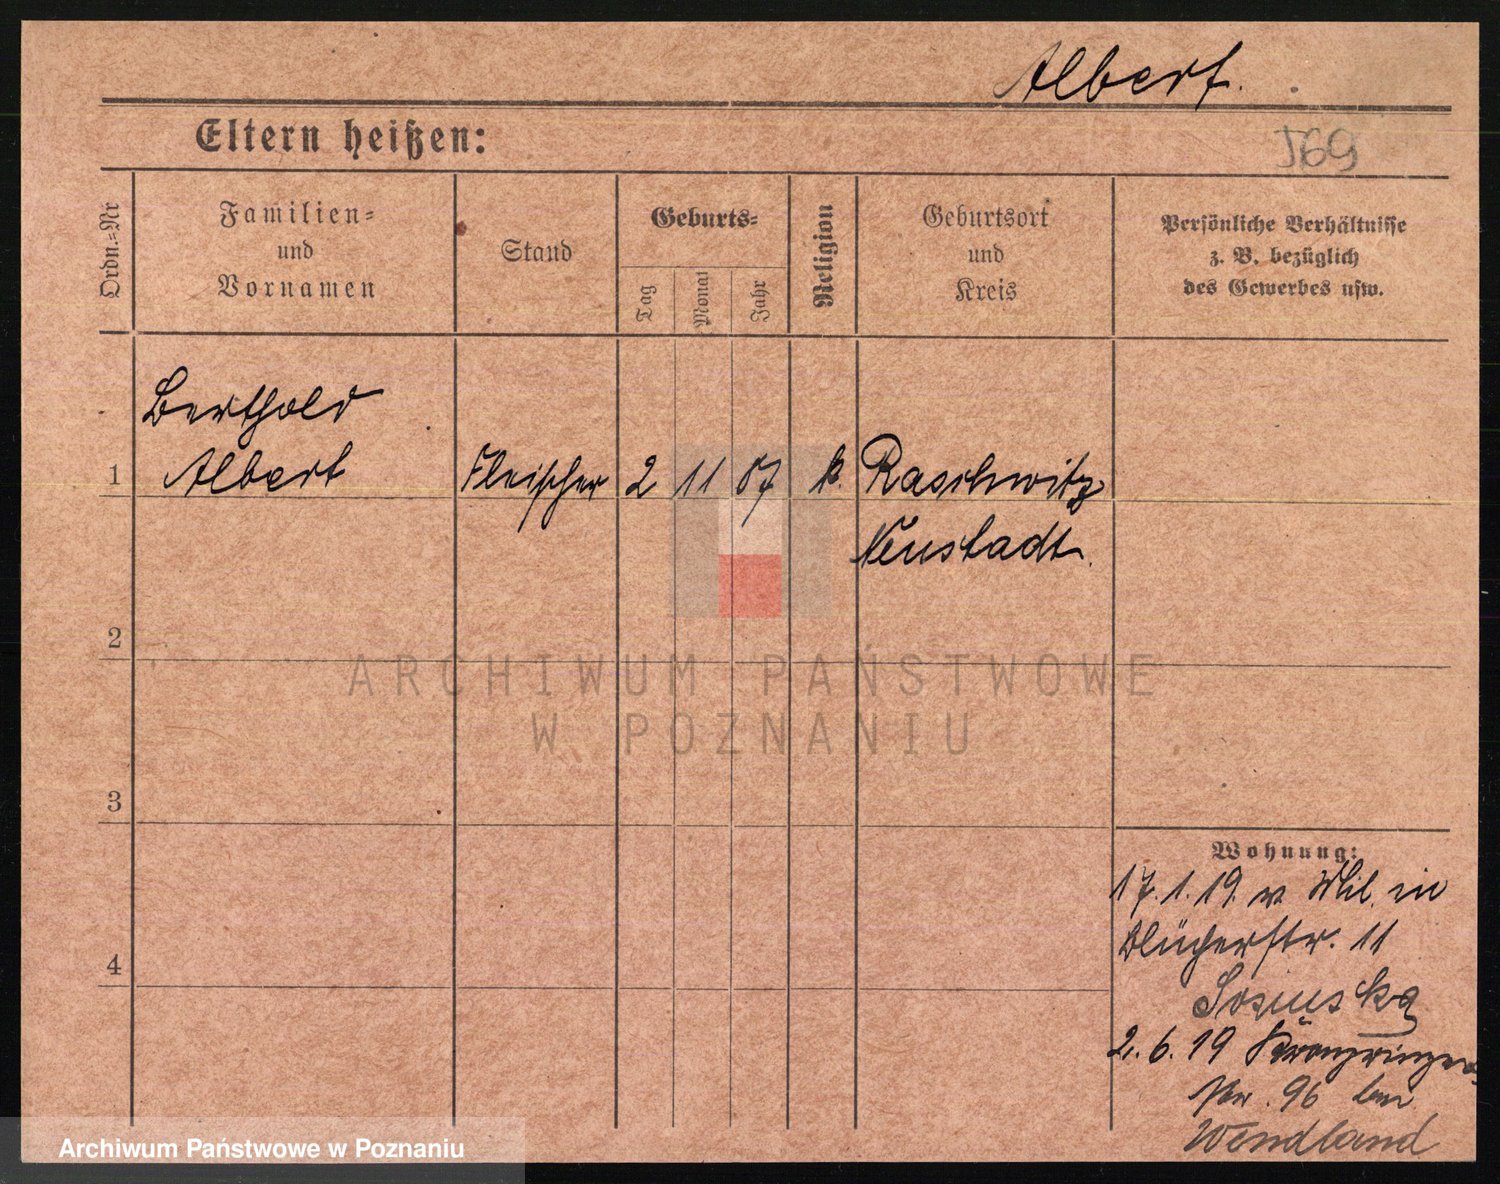 Albert.
Eltern heißen:
J69
Ordn.=Nr
Familien=
und
Vornamen
Stand
Geburts=
Tag
Monat
Jahr
Religion
Geburtsort
und
Kreis
Persönliche Verhältnisse
z. B. bezüglich
des Gewerbes usw.
Berthold
1 Albert Fleischer 2 11 87 k. Raschwitz
Neustadt.
2
ARCHIWUM PAŃSTWOWE
W POZNANIU
3
Wohnung:
17.1.19. v. Mil. in
Blücherstr. 11
4
2.6.19 Kronprinzen
str. 96 bei
Wendland
Archiwum Państwowe w Poznaniu